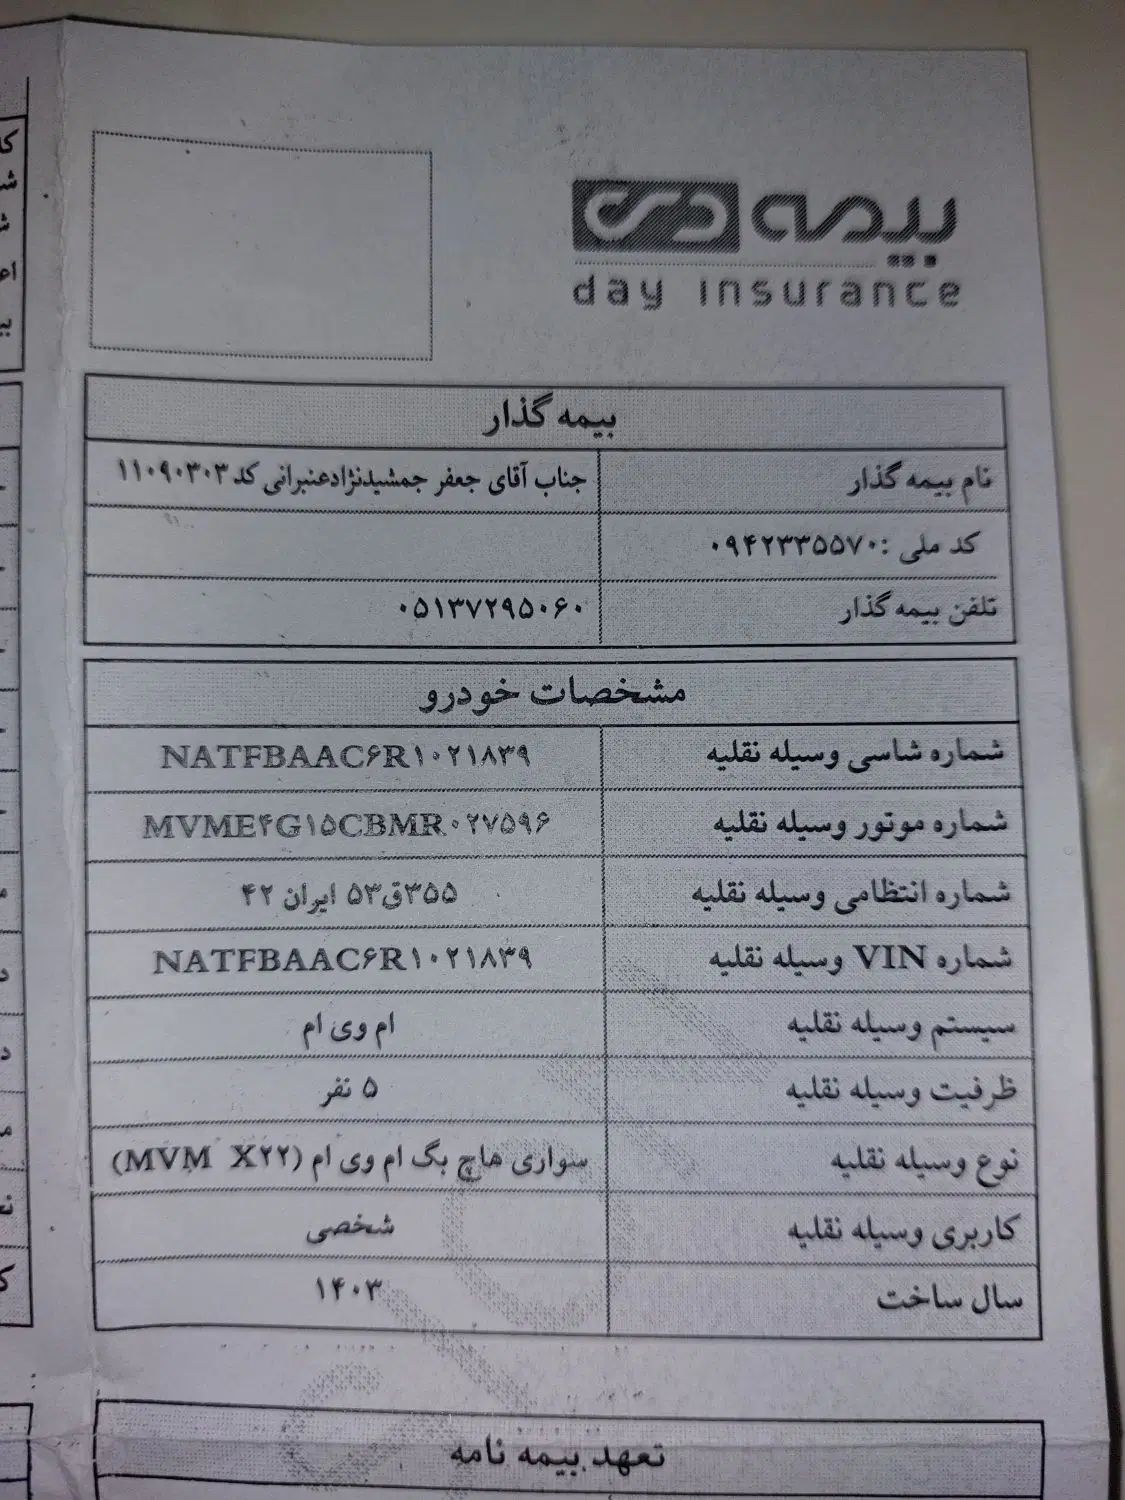 بیمه دی
day insurance
بیمه گذار
نام بیمه گذار جناب آقای جعفر جمشیدنژادعنبرانی کد ۱۱۰۹۰۳۰۳
کد ملی :۰۹۴۲۳۳۵۵۷۰
تلفن بیمه گذار ۰۵۱۳۷۲۹۵۰۶۰
مشخصات خودرو
شماره شاسی وسیله نقلیه NATFBAAC۶R۱۰۲۱۸۳۹
شماره موتور وسیله نقلیه MVME۴G۱۵CBMR۰۲۷۵۹۶
شماره انتظامی وسیله نقلیه ۳۵۵ق۵۳ ایران ۴۲
شماره VIN وسیله نقلیه NATFBAAC۶R۱۰۲۱۸۳۹
سیستم وسیله نقلیه ام وی ام
ظرفیت وسیله نقلیه ۵ نفر
نوع وسیله نقلیه سواری هاچ بگ ام وی ام (MVM X۲۲)
کاربری وسیله نقلیه شخصی
سال ساخت ۱۴۰۳
تعهد بیمه نامه